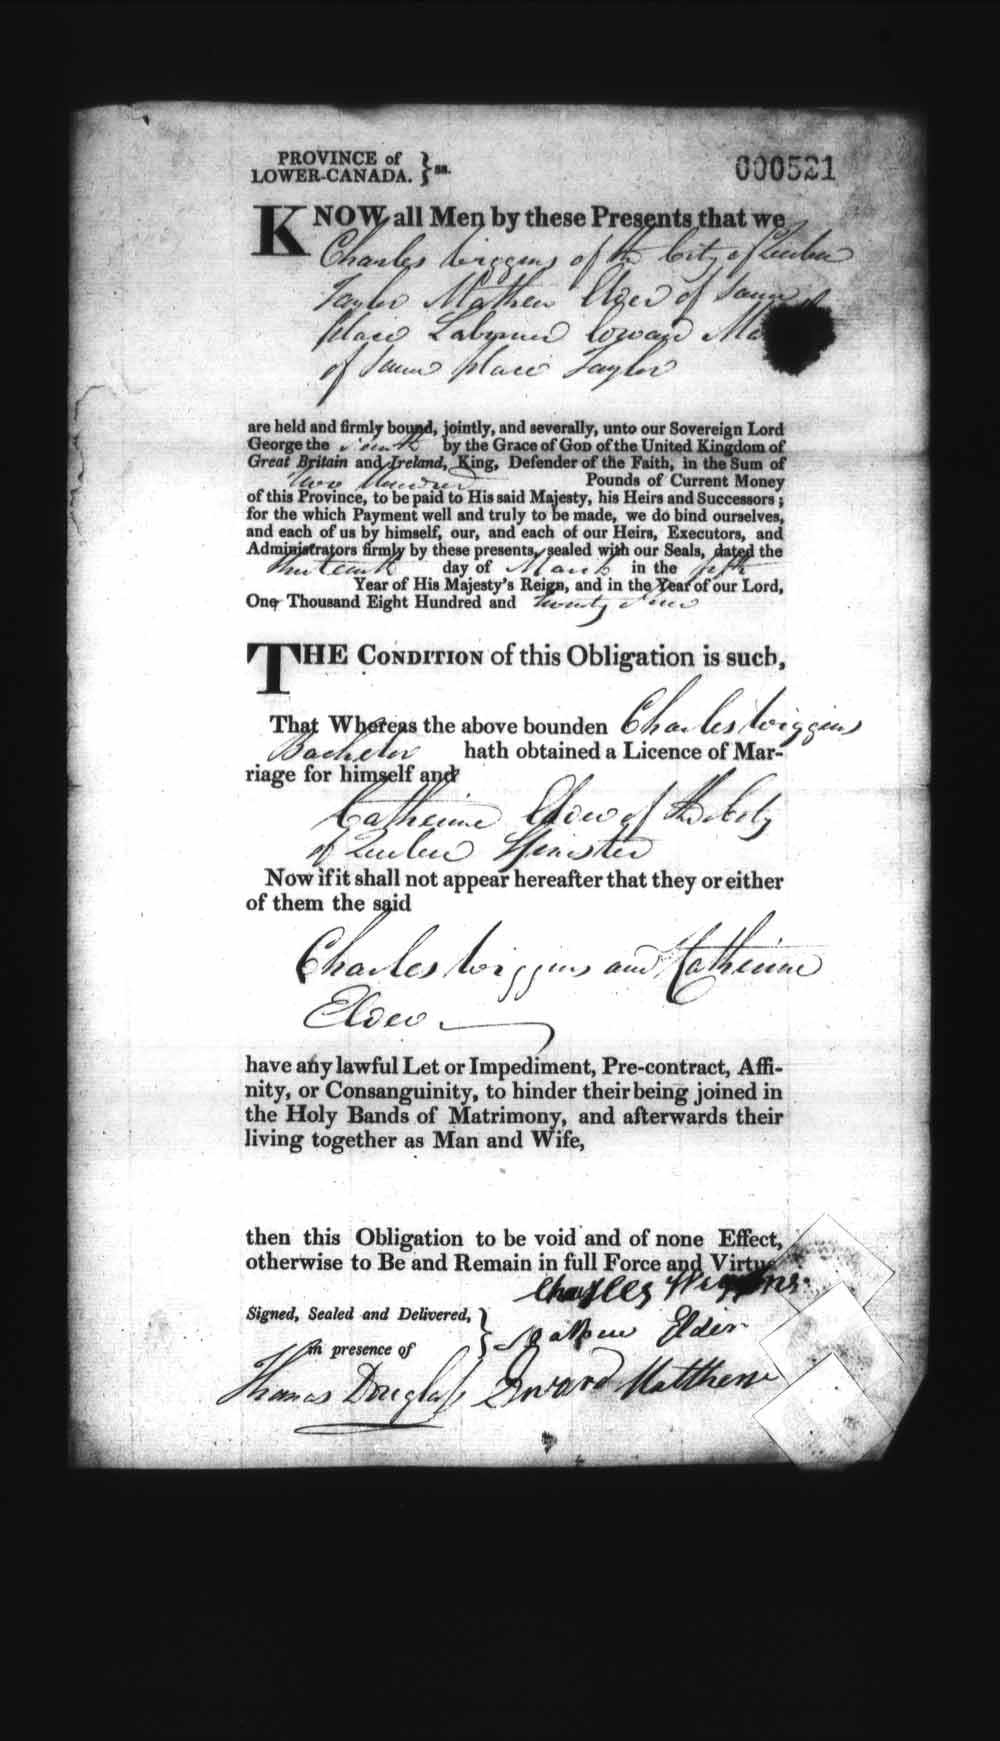 PROVINCE of
LOWER-CANADA. } ss.
000521
KNOW all Men by these Presents that we
Charles Wiggins of the City of Quebec
Taylor Mathew Elder of same
place Labourer Edward Ma
of same place Taylor
are held and firmly bound, jointly, and severally, unto our Sovereign Lord
George the Fourth by the Grace of GOD of the United Kingdom of
Great Britain and Ireland, King, Defender of the Faith, in the Sum of
Two Hundred Pounds of Current Money
of this Province, to be paid to His said Majesty, his Heirs and Successors;
for the which Payment well and truly to be made, we do bind ourselves,
and each of us by himself, our, and each of our Heirs, Executors, and
Administrators firmly by these presents, sealed with our Seals, dated the
thirteenth day of March in the
Year of His Majesty's Reign, and in the Year of our Lord,
One Thousand Eight Hundred and twenty
THE CONDITION of this Obligation is such,
That Whereas the above bounden Charles Wiggins
Bachelor hath obtained a Licence of Mar-
riage for himself and
Catherine Elder of the City
of Quebec Spinster
Now if it shall not appear hereafter that they or either
of them the said
Charles Wiggins and Catherine
Elder
have any lawful Let or Impediment, Pre-contract, Affi-
nity, or Consanguinity, to hinder their being joined in
the Holy Bands of Matrimony, and afterwards their
living together as Man and Wife,
then this Obligation to be void and of none Effect,
otherwise to Be and Remain in full Force and Virtue
Charles Wiggins
Signed, Sealed and Delivered,
Mathew Elder
in presence of
Thomas Douglass Edward Matthews